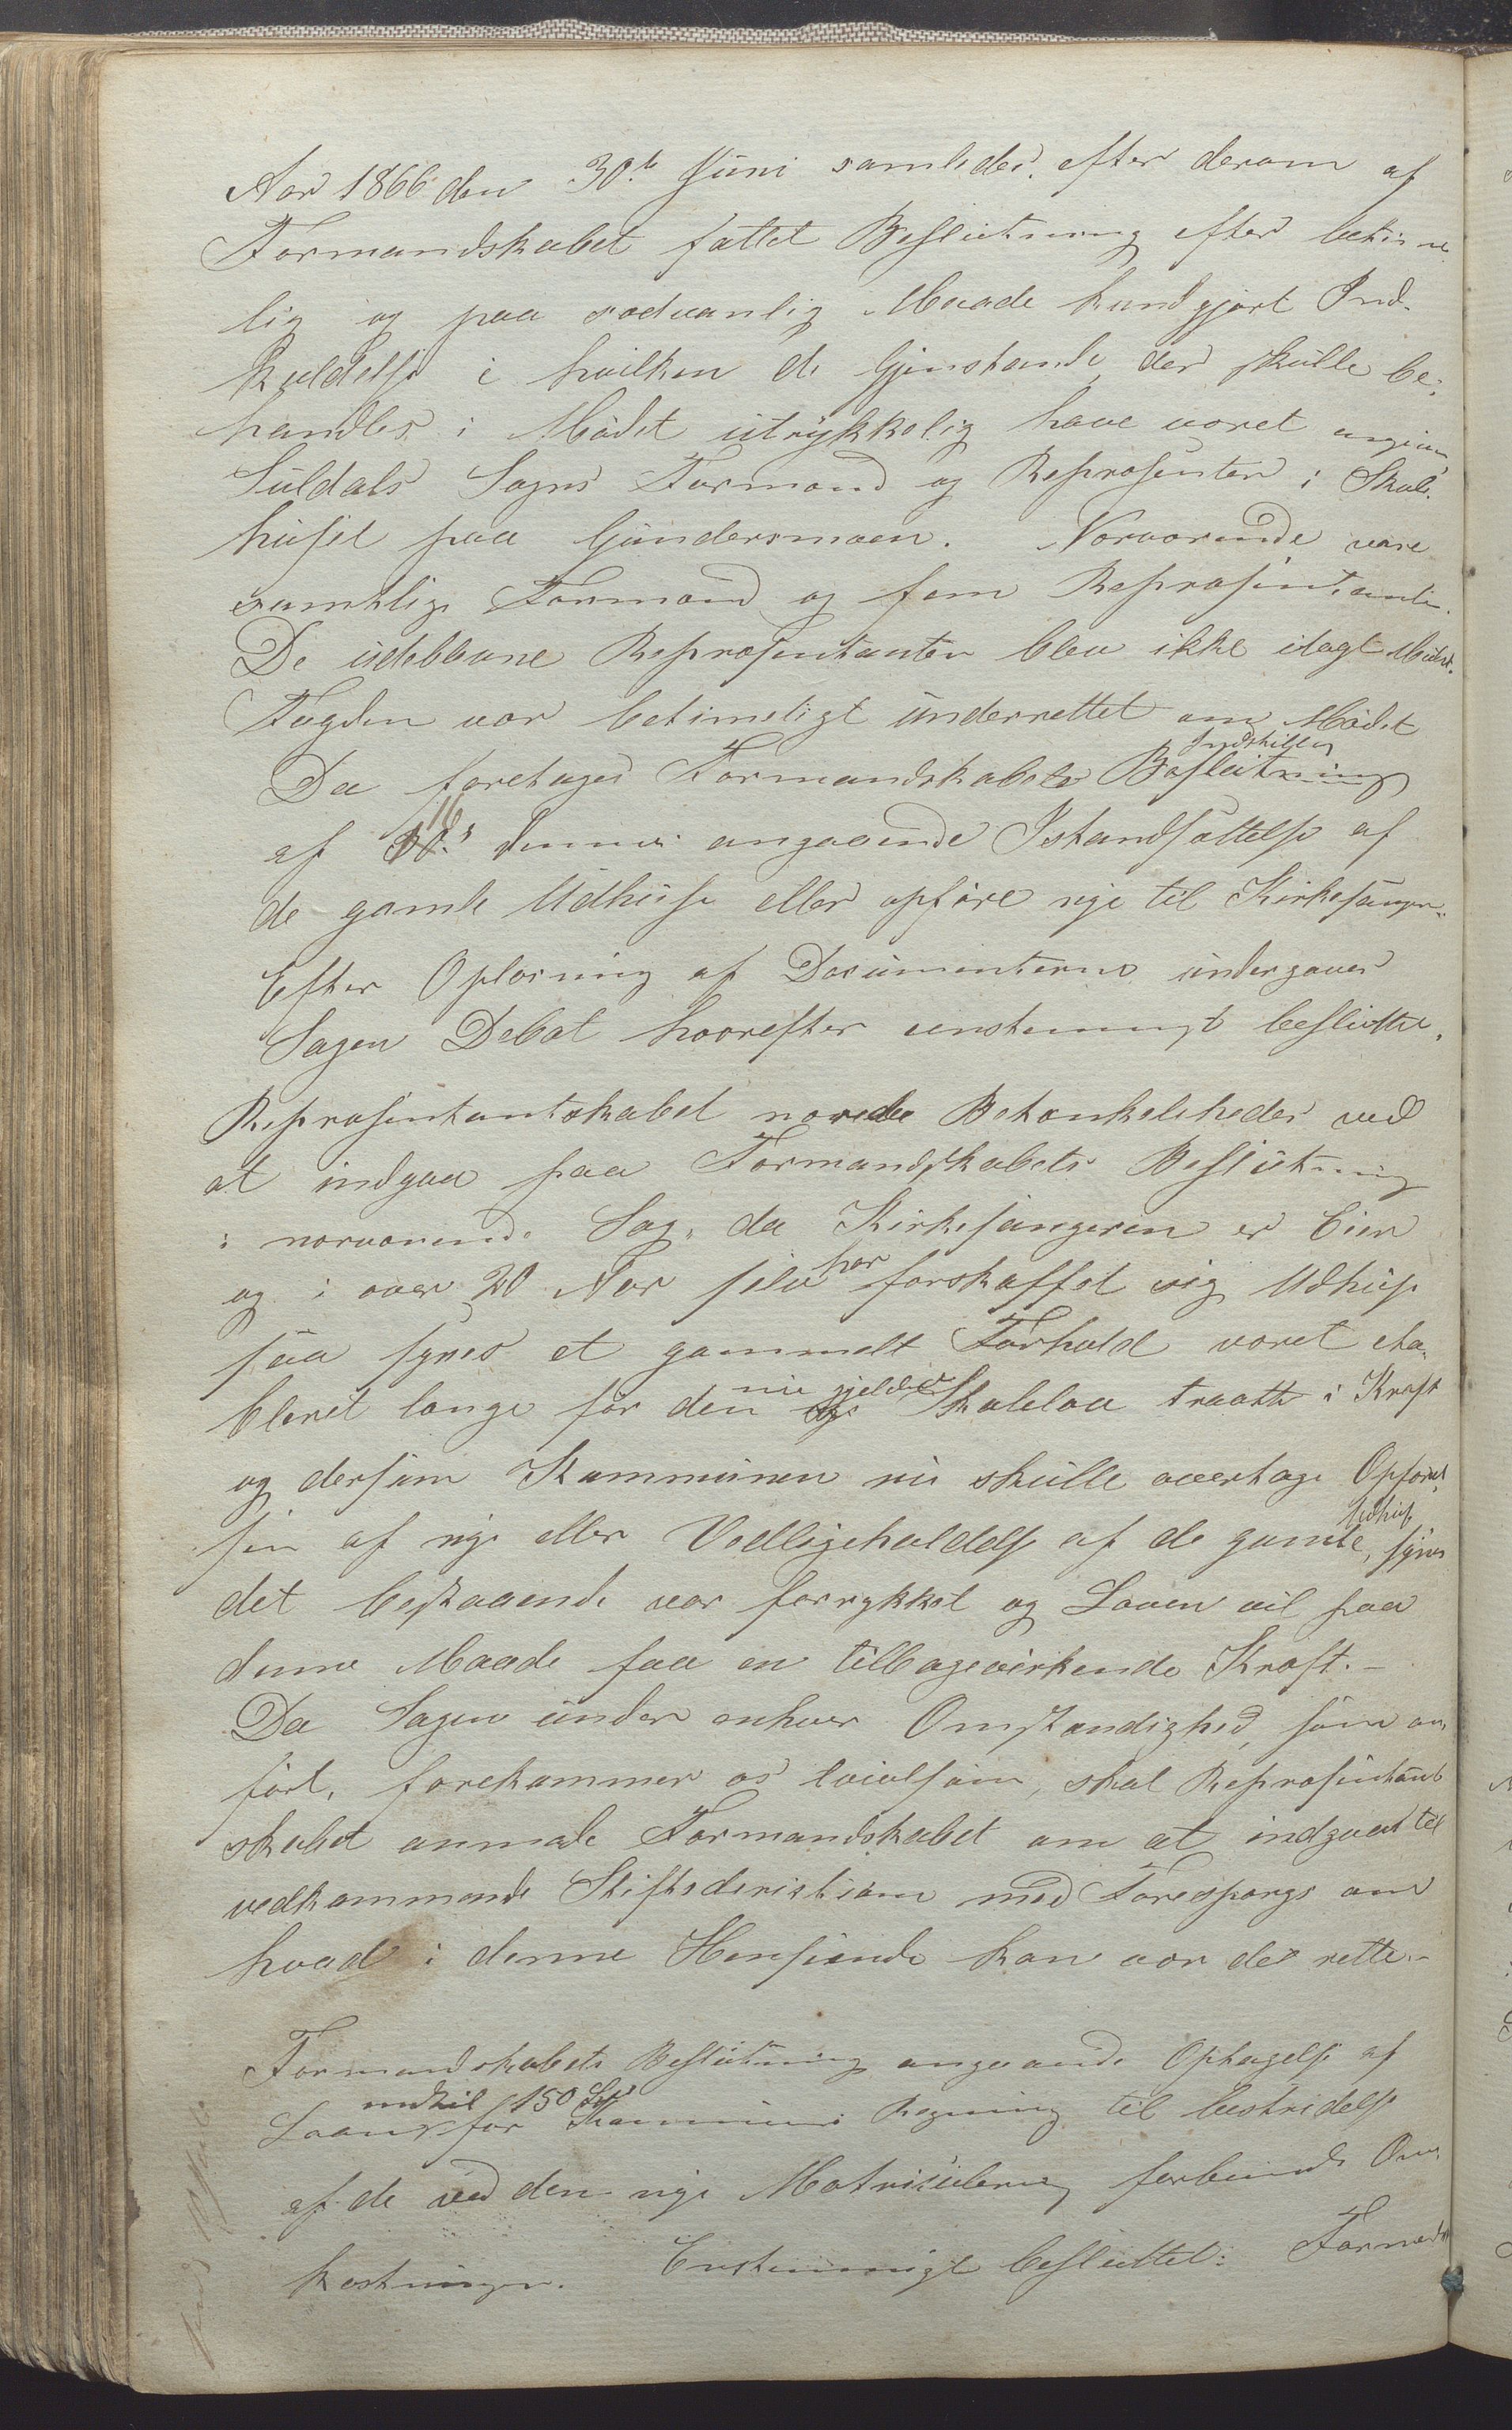 Aar 1866 den 30te Juni samledes efter derom af
Formandskabet fattet Beslutning efter betime
lig og paa sædvanlig Maade kundgjort Ind-
kaldelse i hvilken de Gjenstande, der skulle be-
handles i Mødet utrykkelig have været angivne
Suldals Sogns Formænd og Repræsenter i Skole
huset paa Gundersmoen. Nærværende vare
samtlige Formænd og fem Repræsentanter.
De udeblevne Repræsentanter blev ikke ilagt Mulkt.
Fogden var betimeligt underrettet om Mødet
Da foretages Formandskabets Beslutning Indstilling
af 16 dennes angaaende Istandsættelse af
de gamle Udhuse eller opføre nye til Kirkesanger-
Efter Oplæsning af Documenterne undergaves
Sagen Debat hvorefter enstemmigt besluttet.
Repræsentantskabet nærede Betænkeligheder ved
at indgaa paa Formandskabets Beslutning
i nærværende Sag, da Kirkesangeren er Eier
og i over 20 Aar selv har forskaffet sig Udhuse
saa synes et gammelt Forhold været eta-
bleret længe før den nu gjeldende Skolelov traatte i Kraft
og dersom Kommunen nu skulle overtage Opførel
sen af nye eller Vedligeholdelse af de gamle Udhuse, synes
det bestaaende vor forrykket og Loven vil paa
denne Maade faa en tilbagevirkende Kraft.-
Da Sagen under enhver Omstændighed, som an
ført, forekommer os tvivlsom, skal Repræsentant
skabet anmode Formandskabet om at indgaae til
vedkommende Stiftsderiktion med Forespørgs om
hvad i denne Henseende kan vær det rette.-
Formandskabets Beslutning angaaende Optagelse af
Laan indtil 150 Spd for Kommunens Regning til bestridelse
af de ved den nye Matriculering forbundne Om
kostninger. Enstemmigt besluttet: Formands